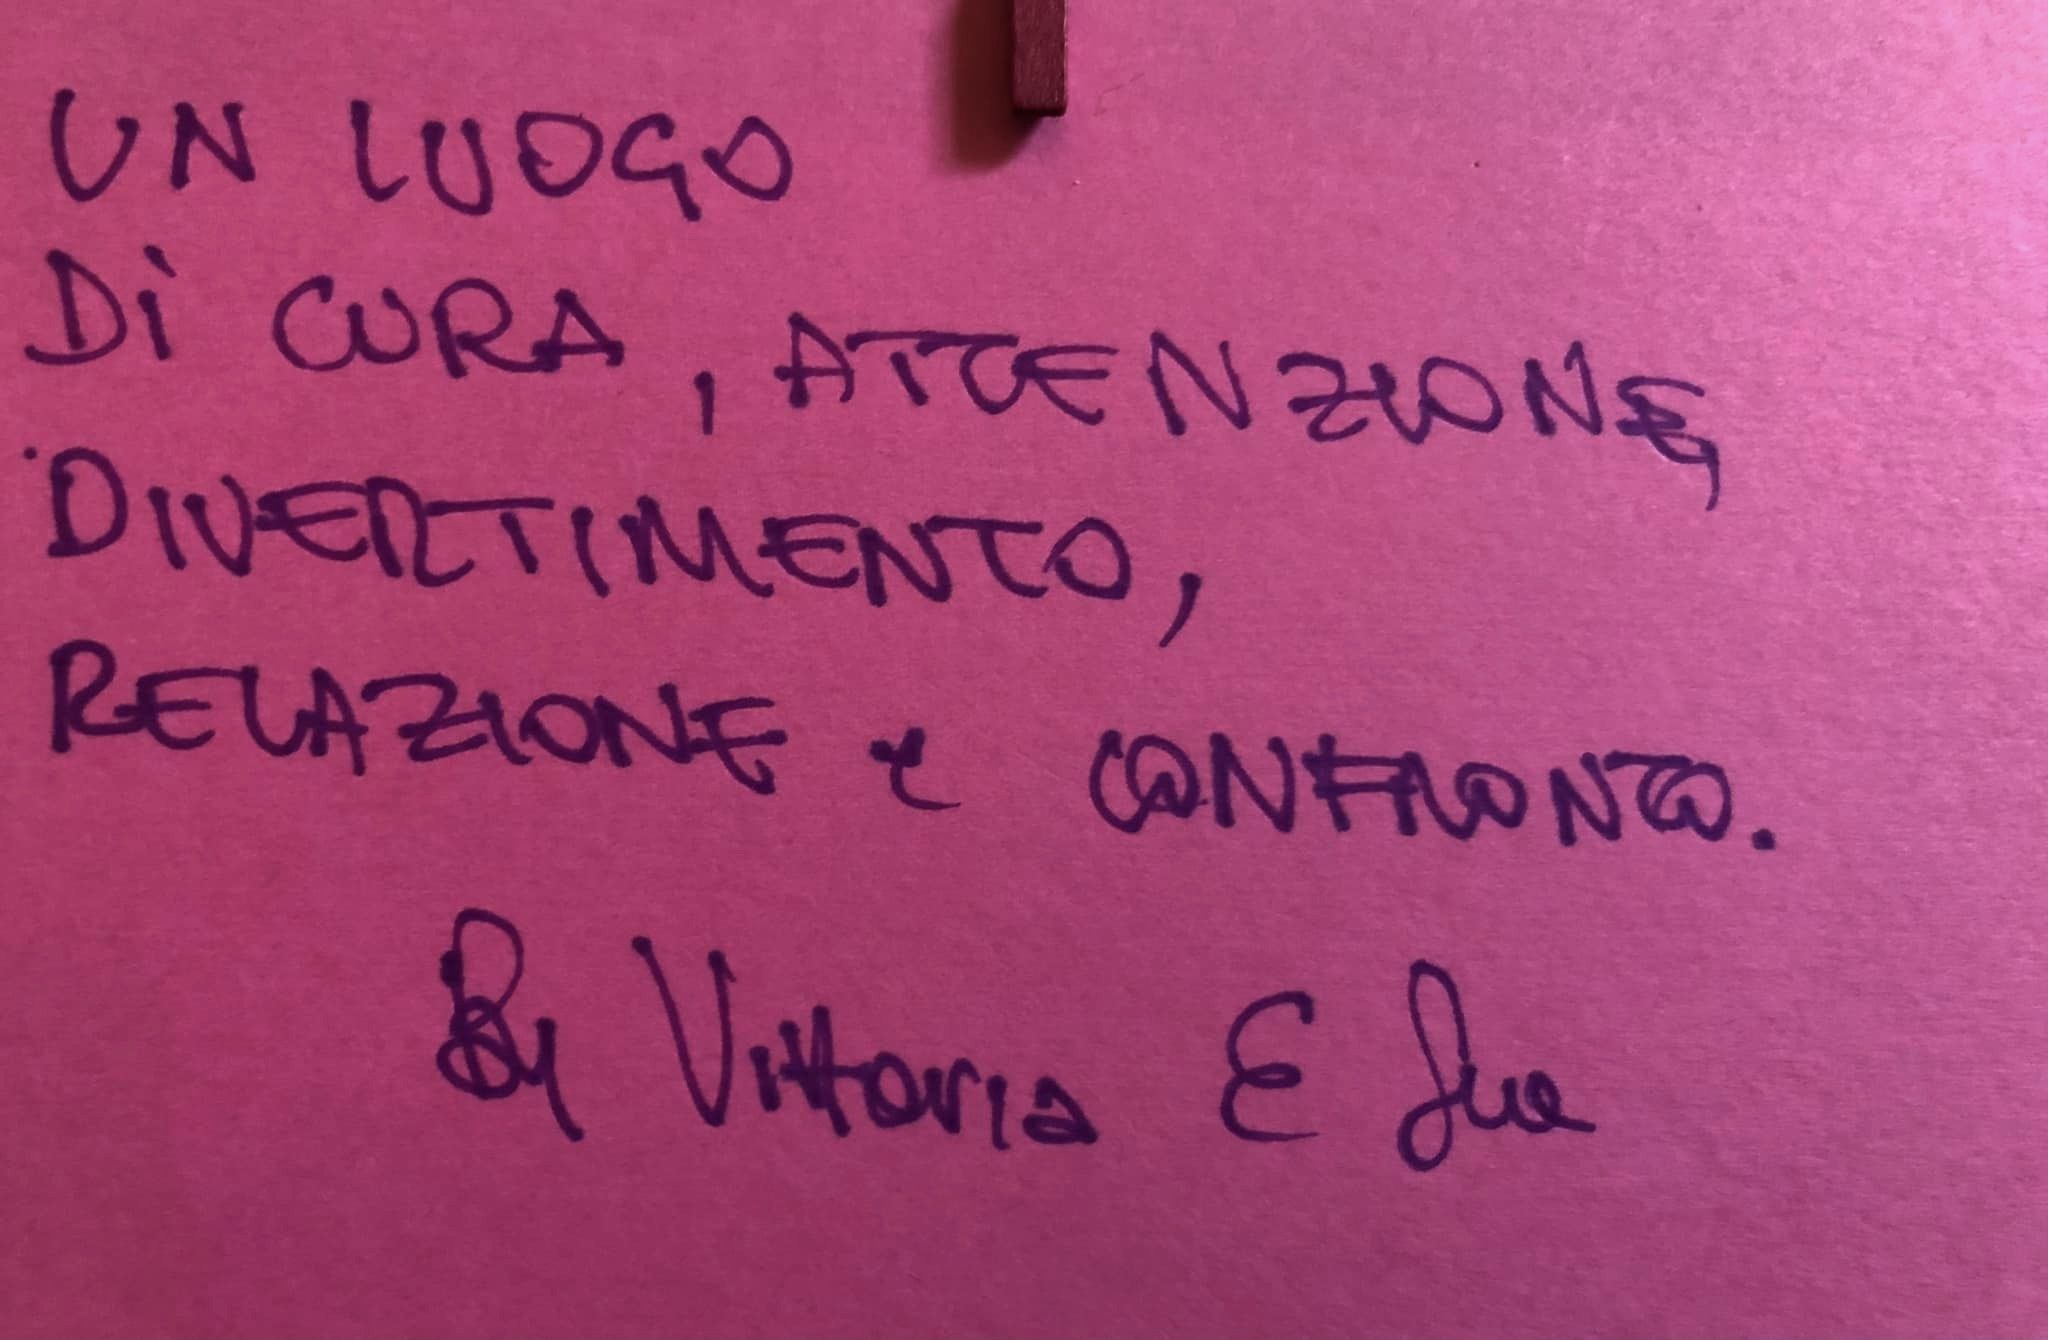 UN LUOGO
Di CURA, ATTENZIONE,
DIVERTIMENTO,
RELAZIONE e CONFRONTO.
By Vittoria E